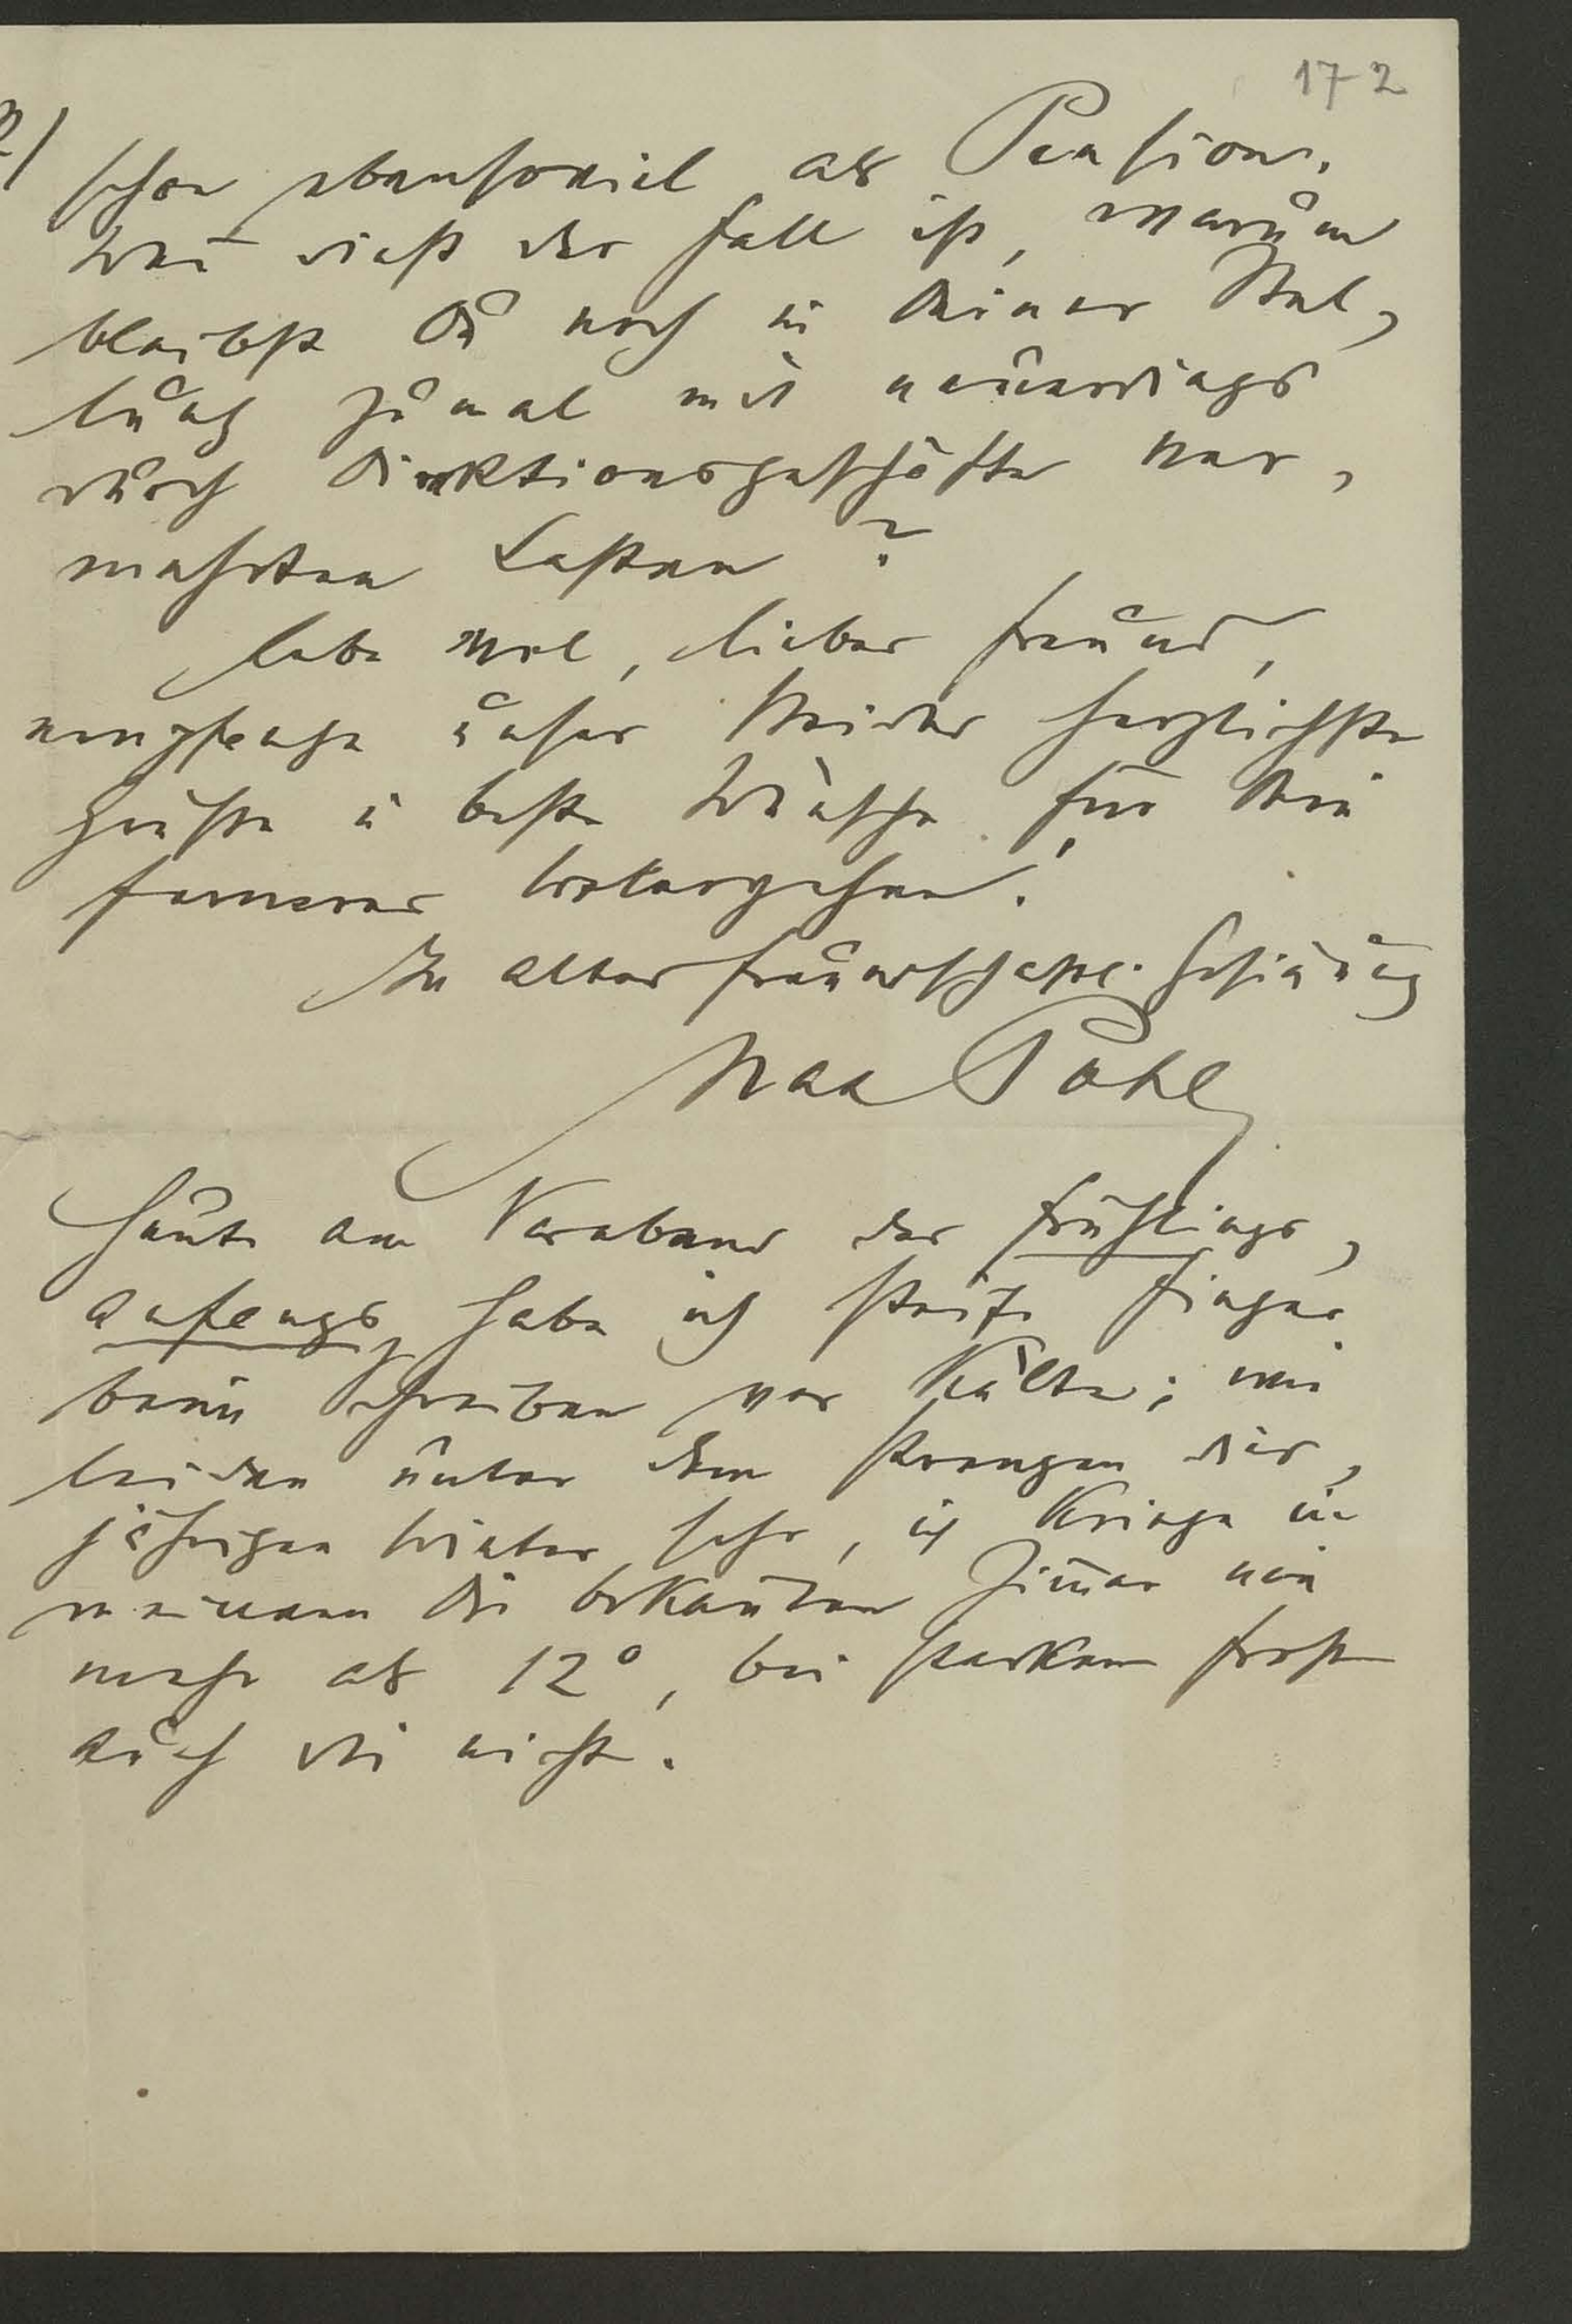 172
2/
schon ebensoviel als Pension.
Wenn dieß der Fall ist, warum
bleibst Du noch in Deiner Stel,
lung zumal mit neuerdings
durch Direktionsgeschäfte ver,
mehrten Lasten?
Lebe wol, lieber Freund,
empfange unser Beider herzlichste
Grüße u beste Wünsche für Dein
ferneres Wolergehen!
In alter freundschaftl. Gesinnung
Max Pohl
Heute am Vorabend des Frühlings,
anfangs habe ich steife Finger
beim Schreiben vor Kälte; wir
leiden unter dem strengen dies,
jährigen Winter sehr, ich kriege in
meinem Dir bekannten Zimmer nie
mehr als 12°, bei starkem Frost
auch die nicht.